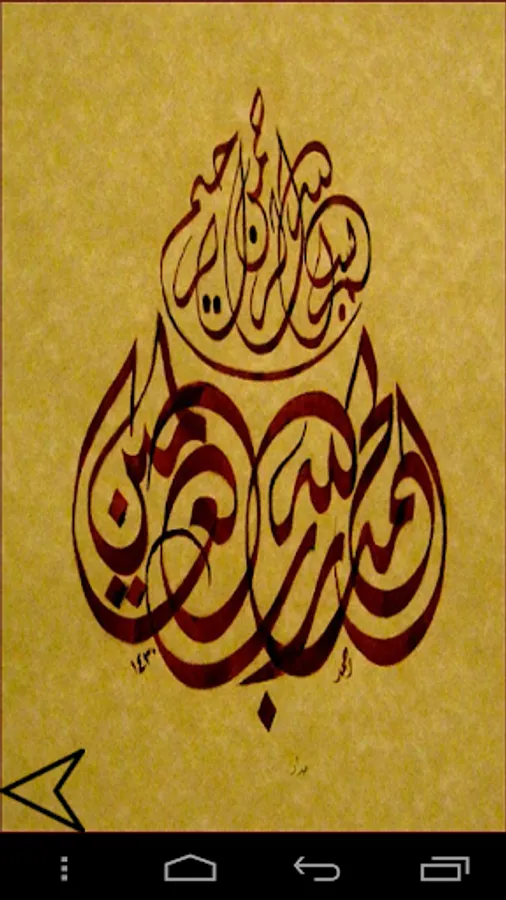 بسم الله الرحمن الرحيم
الحمد لله رب العالمين
١٤٣٠
احمد